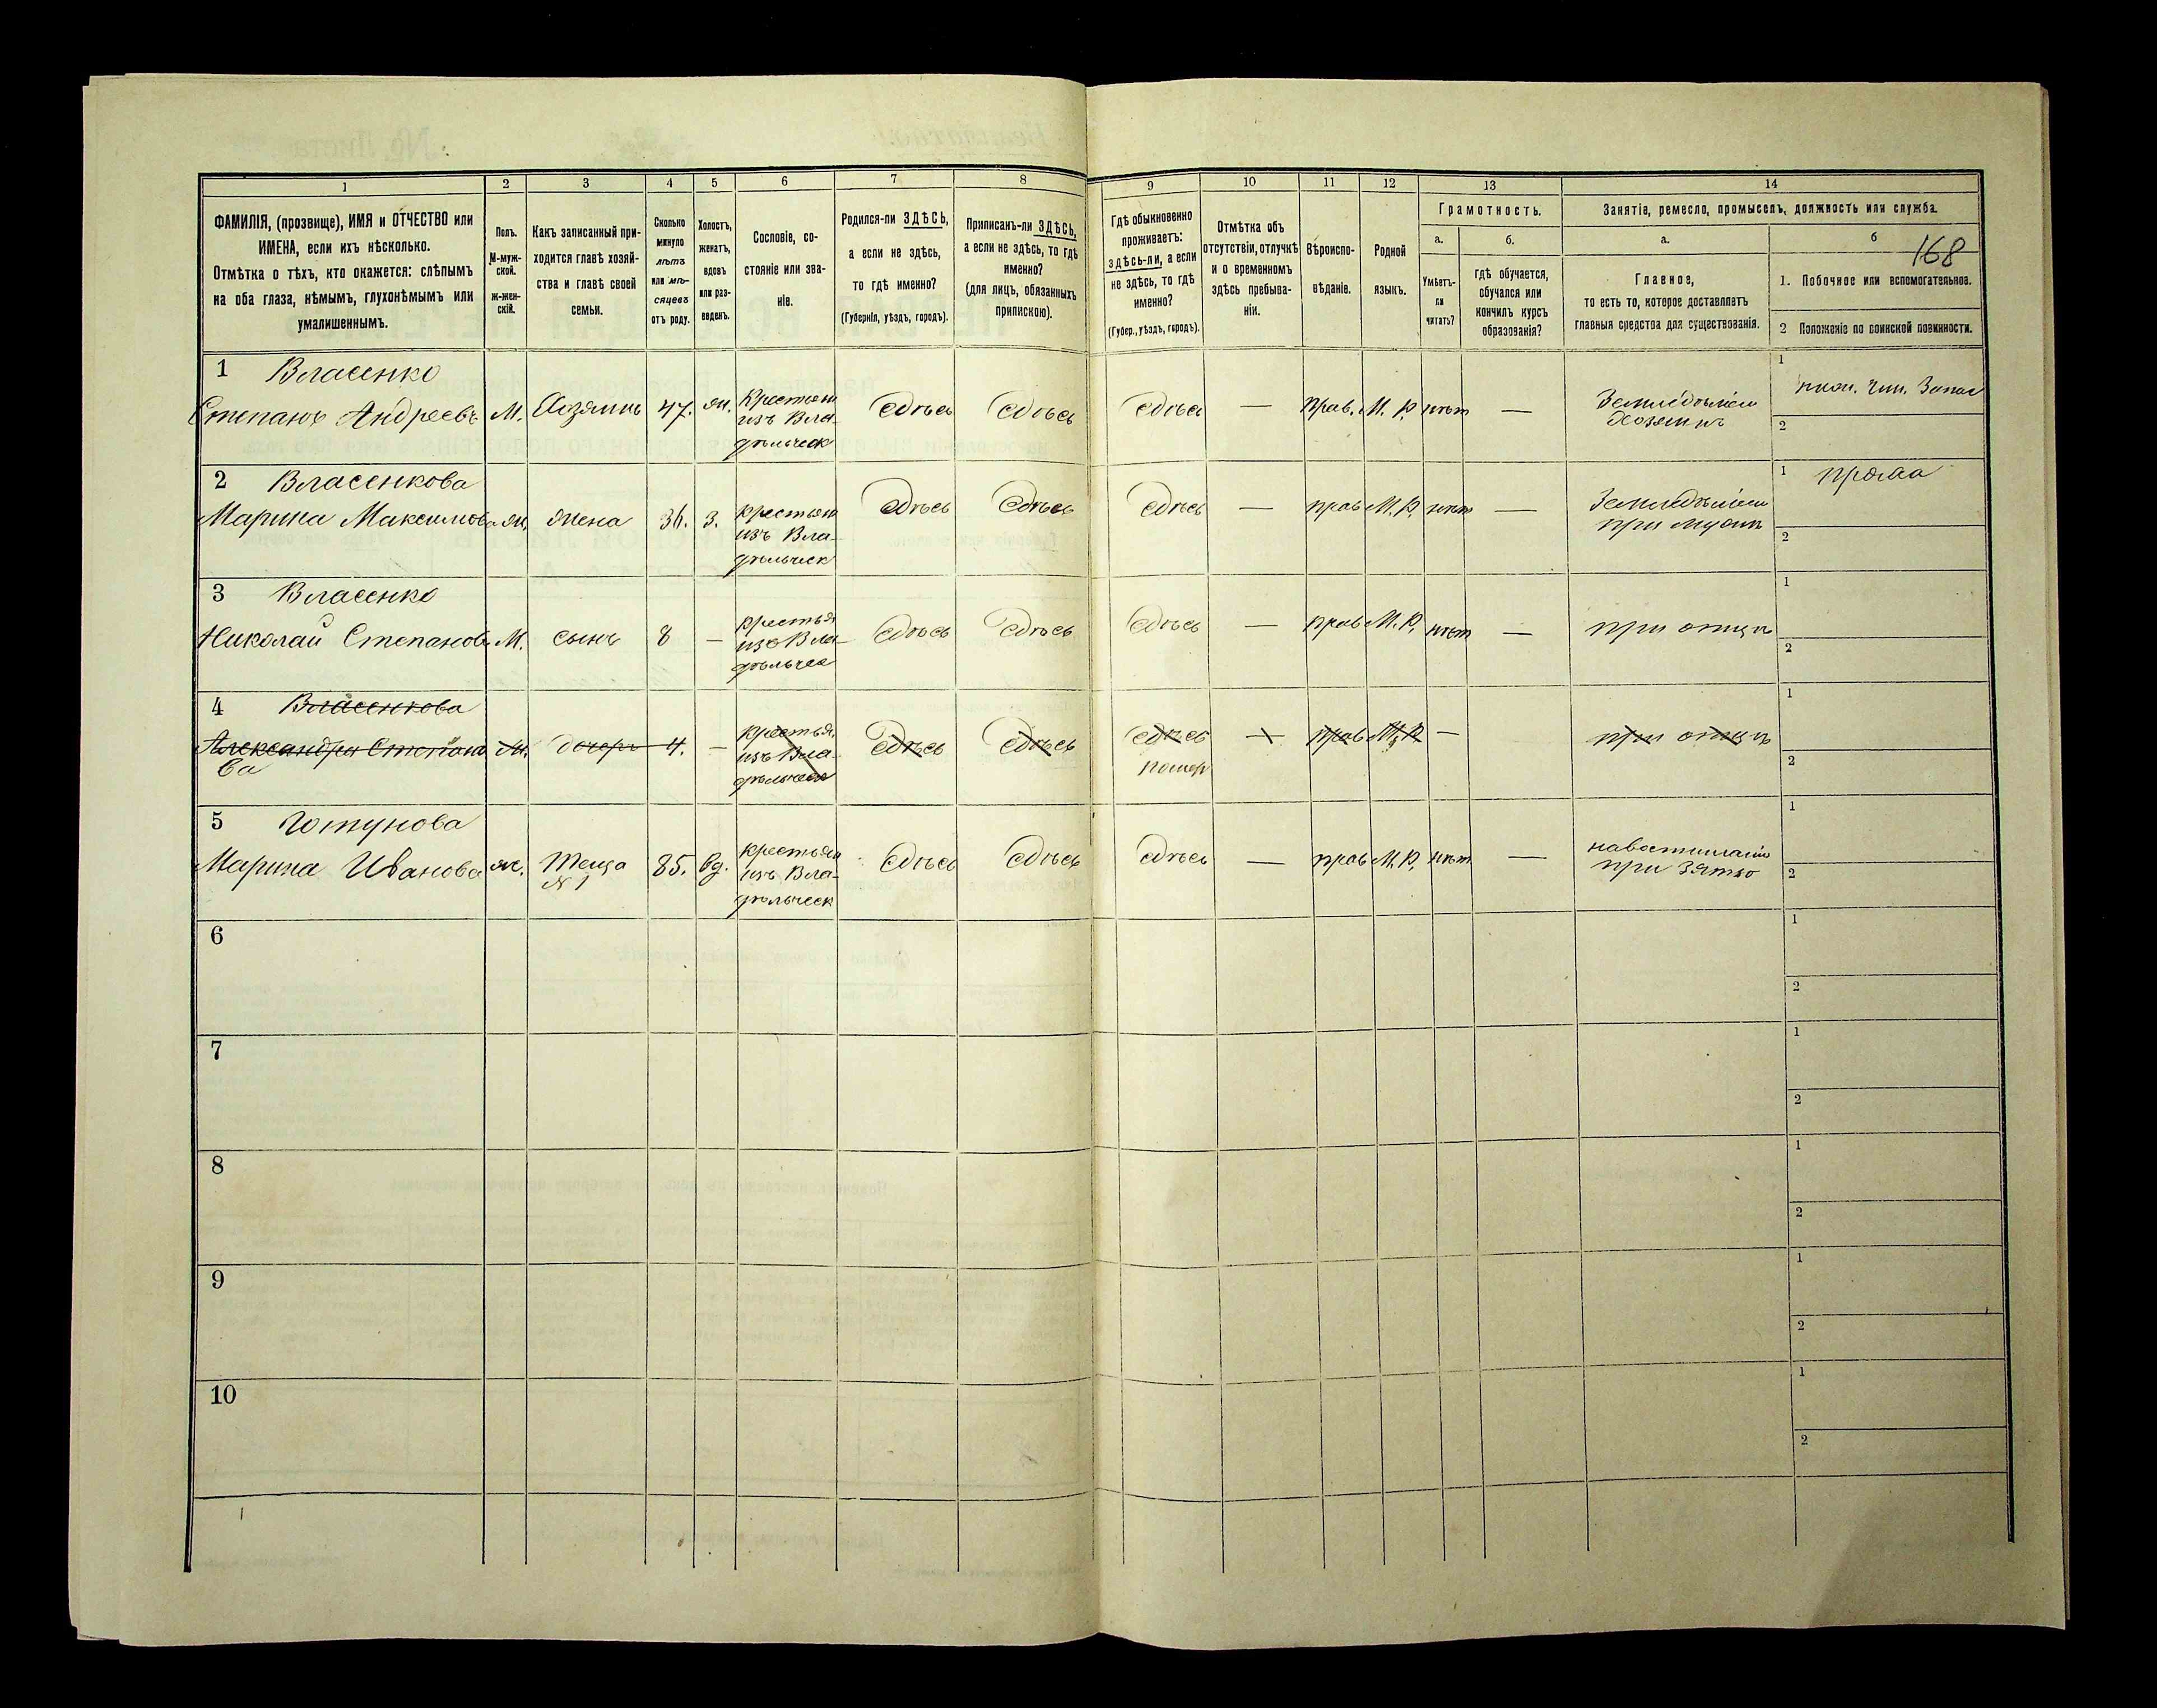 1 2 3 4 5 6 7 8 9 10 11 12 13 14
ФАМИЛІЯ, (прозвище), ИМЯ и ОТЧЕСТВО или
ИМЕНА, если ихъ нѣсколько.
Отмѣтка о тѣхъ, кто окажется: слѣпымъ
на оба глаза, нѣмымъ, глухонѣмымъ или
умалишеннымъ.
Полъ.
М-муж-
ской.
ж-жен-
скій.
Какъ записанный при-
ходится главѣ хозяй-
ства и главѣ своей
семьи.
Сколько
минуло
лѣтъ
или мѣ-
сяцевъ
отъ роду.
Холостъ,
женатъ,
вдовъ
или раз-
веденъ.
Сословіе, со-
стояніе или зва-
ніе.
Родился-ли ЗДѢСЬ,
а если не здѣсь,
то гдѣ именно?
(Губернія, уѣздъ, городъ).
Приписанъ-ли ЗДѢСЬ,
а если не здѣсь, то гдѣ
именно?
(для лицъ, обязанныхъ
припискою).
Гдѣ обыкновенно
проживаетъ:
здѣсь-ли, а если
не здѣсь, то гдѣ
именно?
(Губер., уѣздъ, городъ).
Отмѣтка объ
отсутствіи, отлучкѣ
и о временномъ
здѣсь пребыва-
ніи.
Вѣроиспо-
вѣданіе.
Родной
языкъ.
Грамотность.
а.
Умѣетъ-
ли
читать?
б.
гдѣ обучается,
обучался или
кончилъ курсъ
образованія?
Занятіе, ремесло, промыселъ, должность или служба.
а.
Главное,
то есть то, которое доставляетъ
главныя средства для существованія.
б
168
1. Побочное или вспомогательное.
2 Положеніе по воинской повинности.
1 Власенко
Степанъ Андреевъ М. Хозяинъ 47. ж. Крестьян
изъ Вла-
дѣльческ
сдѣсь сдѣсь сдѣсь — прав. М. Р. нѣт —
Земледѣліе
Хозяинъ
1
2
2 Власенкова
Марина Максимова ж. жена 36. З. крестьян
изъ Вла-
дѣльческ
сдѣсь сдѣсь сдѣсь — прав М. Р. нѣт —
Земледѣліе
при мужѣ
1 пряха
2
3 Власенко
Николай Степановъ М. сынъ 8 — крестья
изъ Вла-
дѣльчес
сдѣсь сдѣсь сдѣсь — прав М. Р. нѣт —
при отцѣ
1
2
4 Власенкова
Александра Степано
ва
М. дочерь 4. — крестья
изъ Вла-
дѣльческ
сдѣсь сдѣсь сдѣсь
помер
— прав М. Р. —
при отцѣ
1
2
5 Готунова
Марина Иванова ж. Теща
№ 1
85. вд. крестьян
изъ Вла-
дѣльческ
сдѣсь сдѣсь сдѣсь — прав М. Р. нѣт —
при зятѣ
1
2
6
1
2
7
1
2
8
1
2
9
1
2
10
1
2